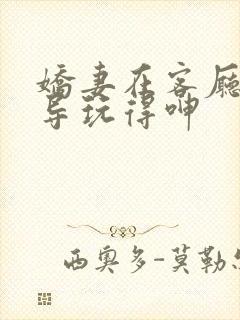 嬌妻在客廳
导玩得呻
西奥多-莫勒